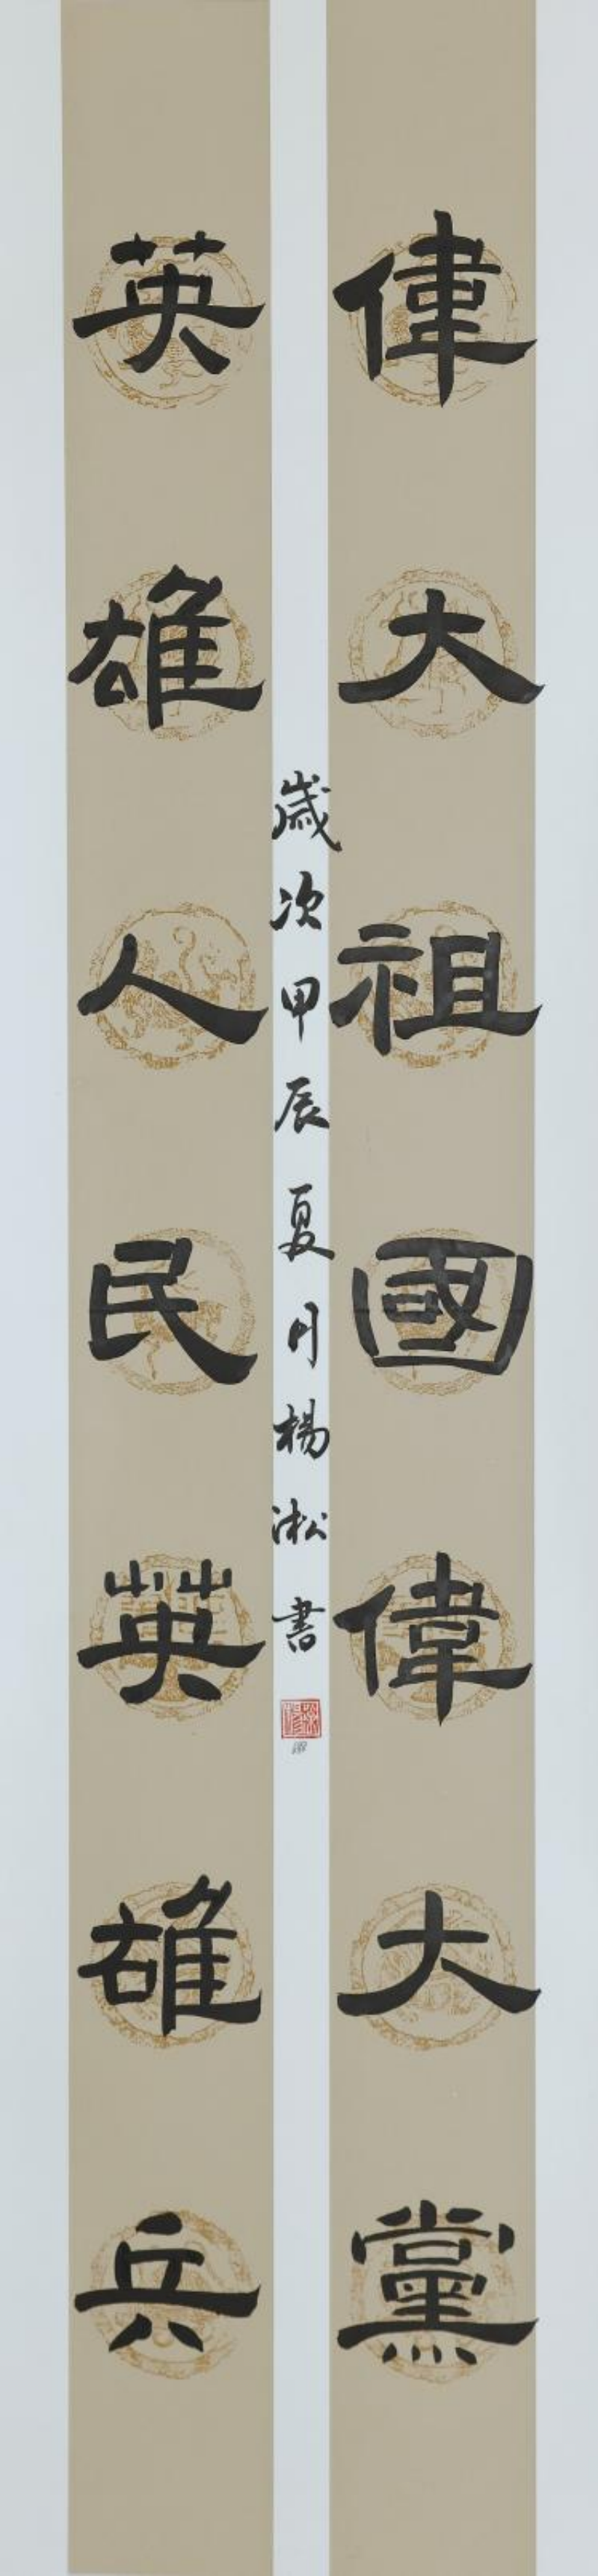 偉大祖國偉大黨
英雄人民英雄兵
歲次甲辰夏月楊淞書